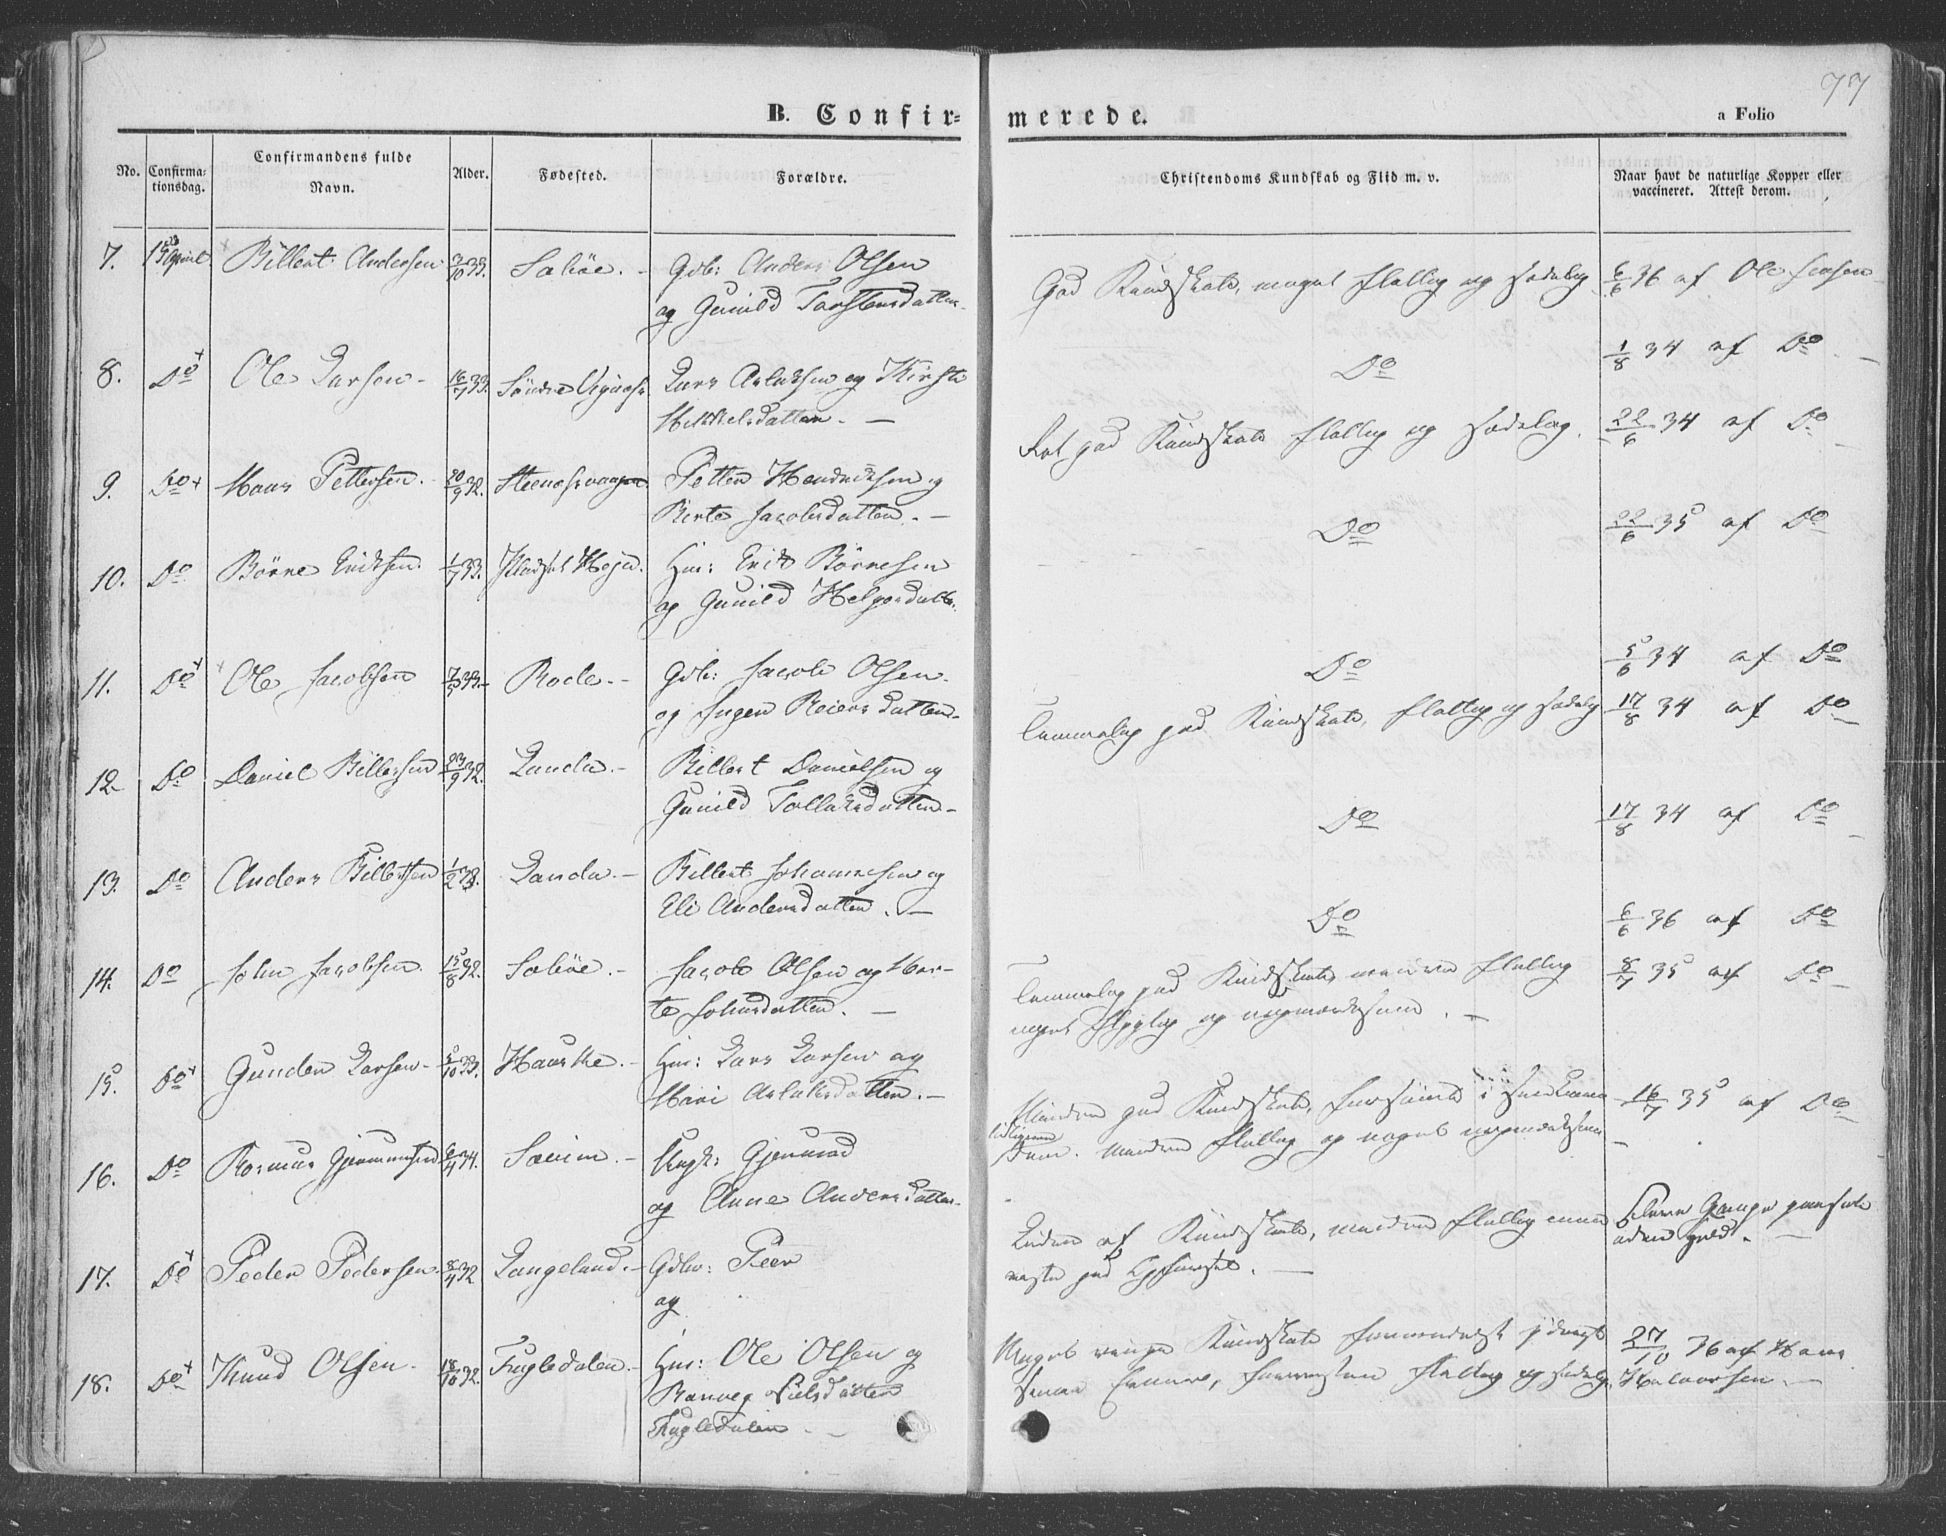 77
B. Confirmerede.
a Folio
No.
Confirmationsdag.
Confirmandens fulde Navn.
Alder.
Fødested.
Forældre.
Christendoms Kundskab og Flid m. v.
Naar havt de naturlige Kopper eller vaccineret. Attest derom.
7. April Billert Andersen 3/10 33. Gdb: Anders Olsen
og Gunild Torstensdatter
God Kundskab, meget flittig og sædelig 6/6 36 af Ole Jensen
8. Do Ole Larsen 16/7 33. Lars Aslaksen og Kirsti
Mikkelsdatter.
Do 1/8 34 af Do
9. Do Hans Pettersen. 20/9 32. Petter Hendriksen og
Berte Jacobsdatter.
Ret god Kundskab flittig og sædelig. 22/6 34 af Do
10. Do Børre Eriksen 1/7 33. Pladset Heja. Hm: Erik Børresen
og Gunild Helgesdatter.
Do 22/6 35 af Do
11. Do Ole Jacobsen 33. Rode. Gdb: Jacob Olsen
og Ingen Reiersdatter
Do 5/6 34 af Do
12. Do Daniel Billertsen 23/9 32. Landa. Billert Danielsen og
Gunild Tollaksdatter
Temmelig god Kundskab, flittig og sædelig 17/8 34 af Do
13. Do Anders Billertsen 1/2 33. Landa. Billert Johannesen og
Eli Andersdatter.
Do 17/8 34 af Do
14. Do John Jacobsen 15/8 32. Jacob Olsen og Mar-
te Johnsdatter.
Do 6/6 36 af Do
15. Do Gunder Larsen 5/10 33. Hauske. Hm: Lars Larsen og
Mari Aslaksdatter.
Temmelig god Kundskab, mindre flittig 8/7 35 af Do
noget og uopmærksom.
16. Do Rasmus Gjermundsen 6/4 34. Ungk: Gjermund
og Anne Andersdatter
Mindre god Kundskab, forsømt i
mindre flittig og noget uopmærksom 16/7 35 af Do
17. Do Peder Pedersen. 8/4 32 Langeland. Gdbr: Peer
og
Liden af Kundskab, mindre flittig men
flere Gange
uden Held.
18. Do Knud Olsen 18/10 32. Fugledalen. Hm: Ole Olsen og
Ranveg Nielsdatter
Fugledalen.
Meget ringe Kundskab formedelst
Evner, forresten flittig og sædelig. 27/10 36 af Hans
Halvorsen.